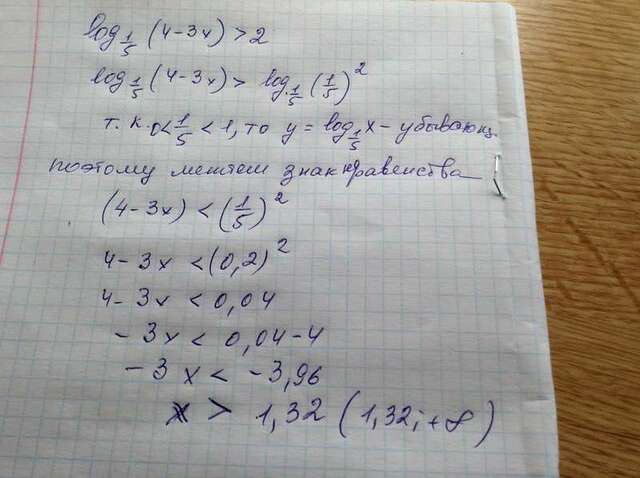 log 1/5 (4-3х) > 2
log 1/5 (4-3х) > log 1/5 (1/5)²
т.к. 0 < 1/5 < 1, то y = log 1/5 x - убывающ.
поэтому меняем знак неравенства
(4-3x) < (1/5)²
4-3x < (0,2)²
4-3x < 0,04
-3x < 0,04-4
-3x < -3,96
x > 1,32 (1,32; +∞)